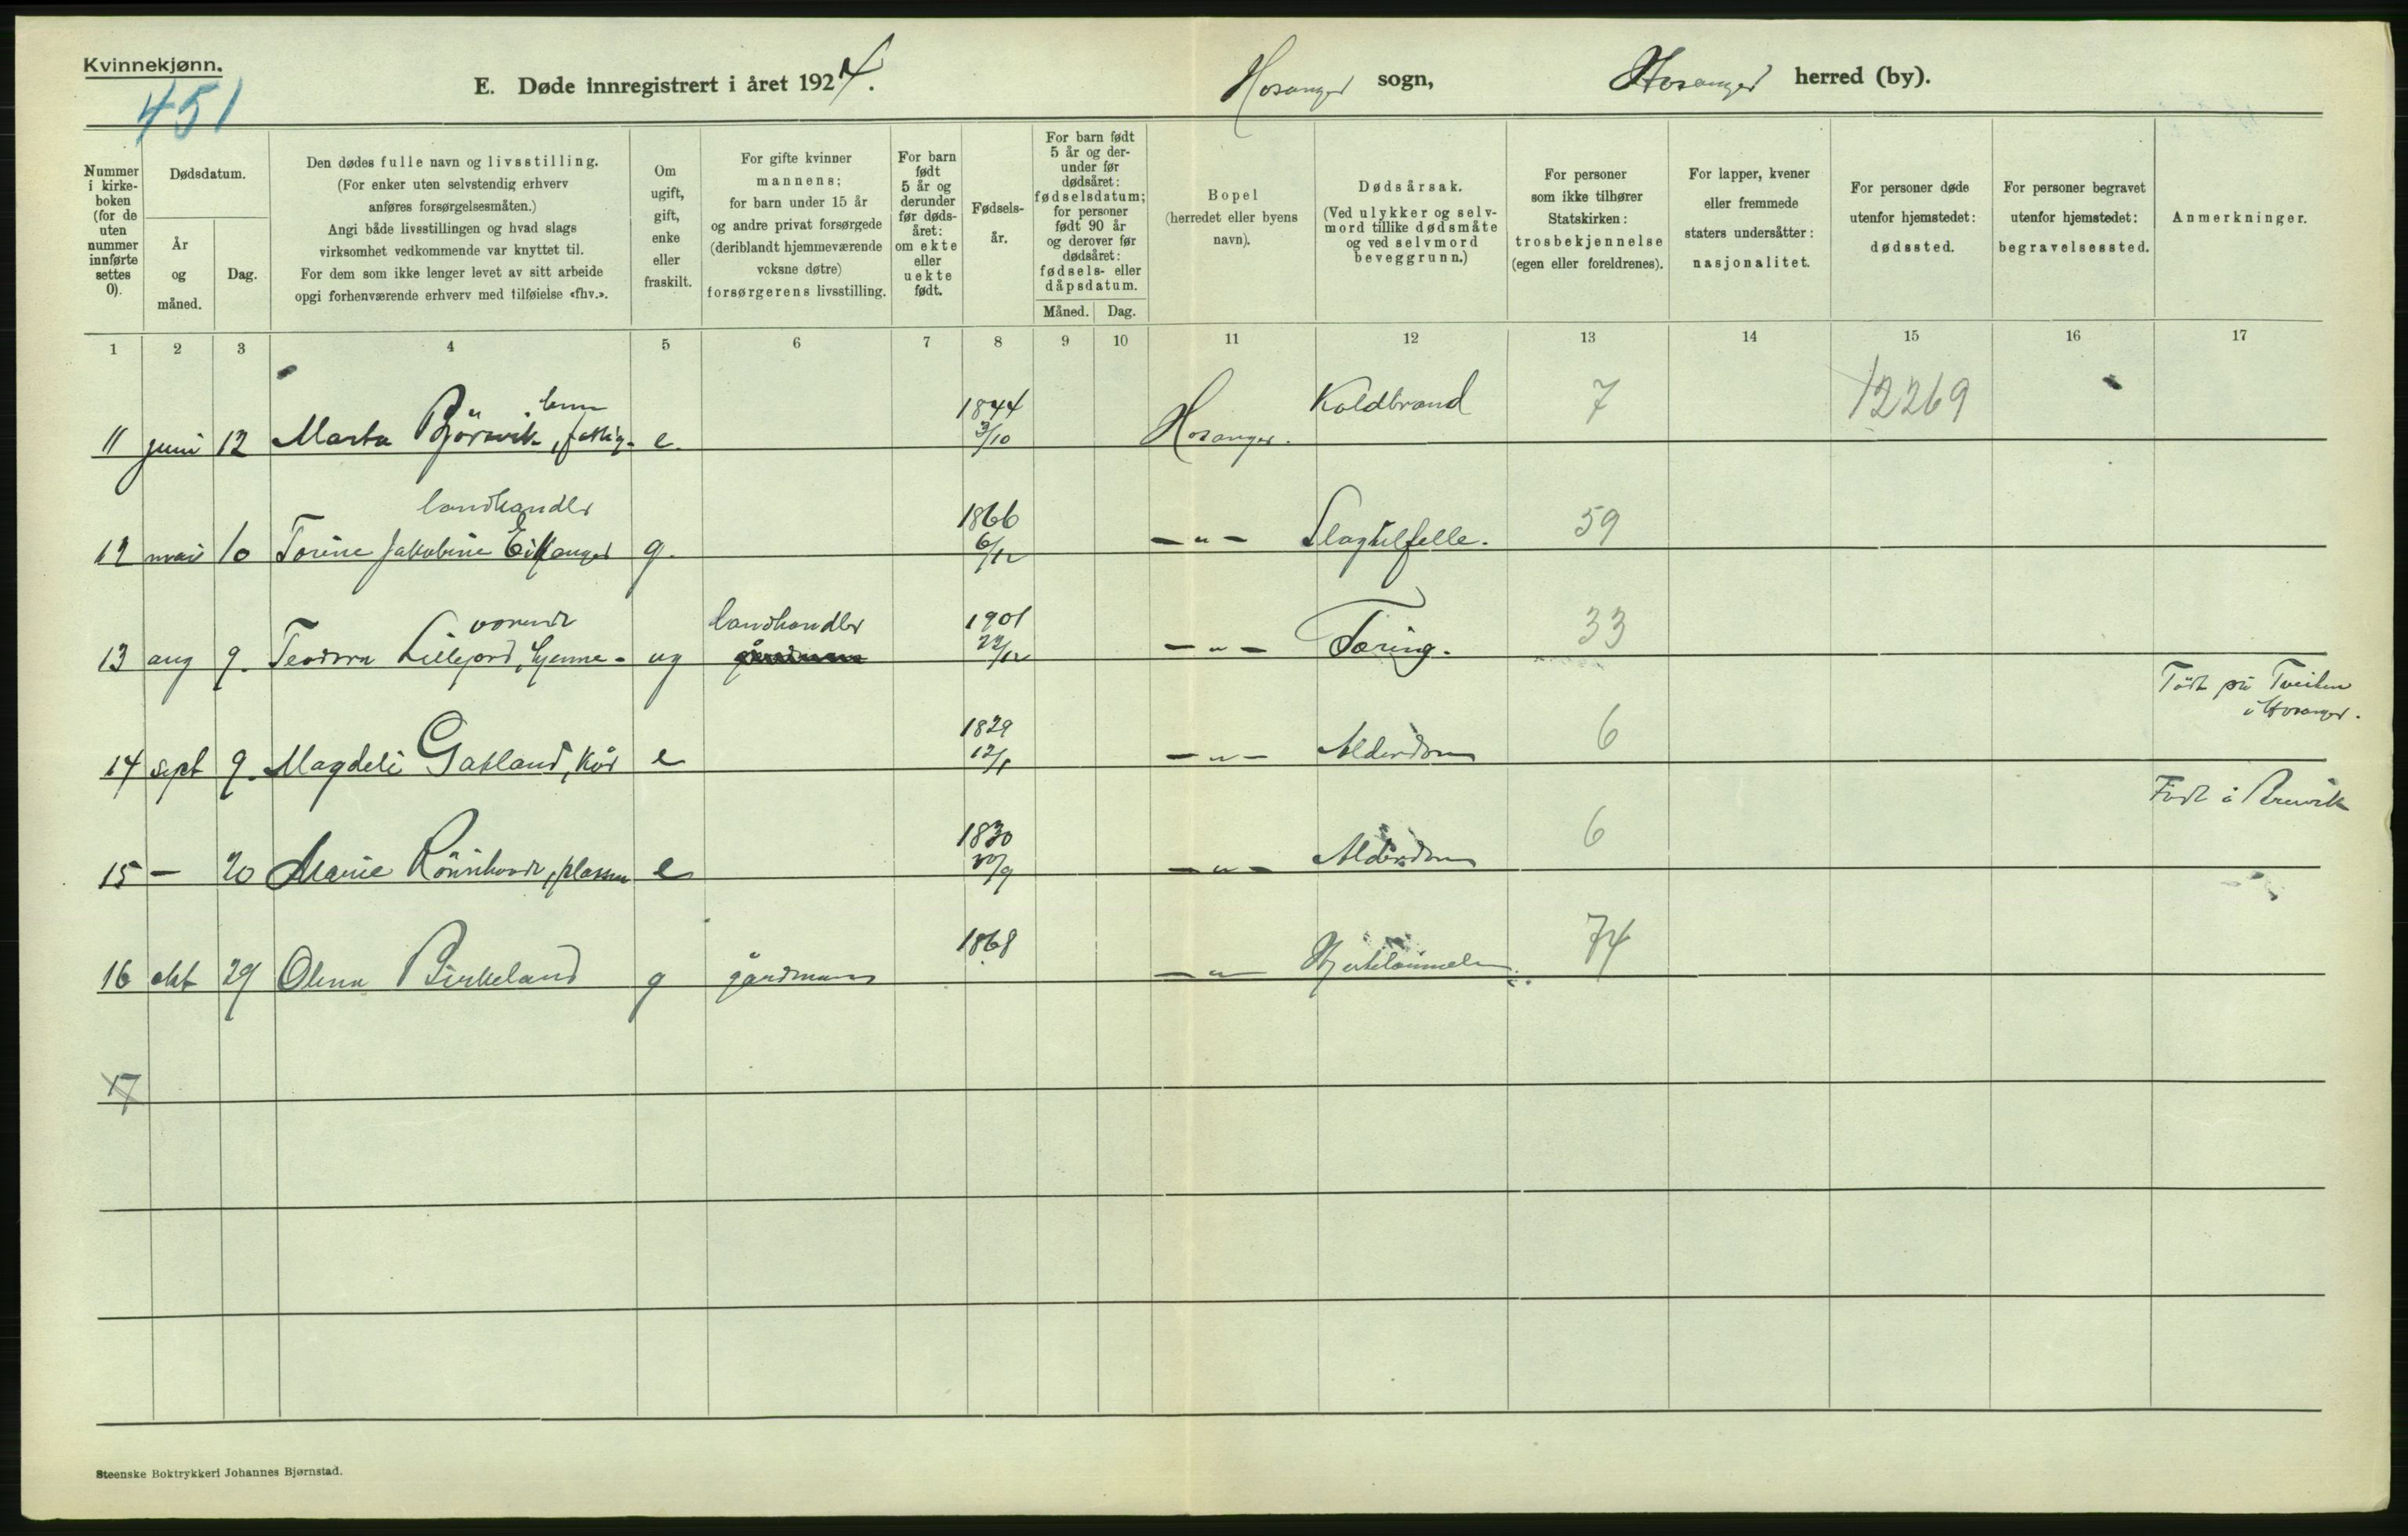 Kvinnekjønn.
451
E. Døde innregistrert i året 1924.
Hosanger sogn,
Hosanger herred (by).
Nummer i kirkeboken (for de uten nummer innførte settes 0).
Dødsdatum.
År og måned.
Dag.
Den dødes fulle navn og livsstilling.
(For enker uten selvstendig erhverv
anføres forsørgelsesmåten.)
Angi både livsstillingen og hvad slags
virksomhet vedkommende var knyttet til.
For dem som ikke lenger levet av sitt arbeide
opgi forhenværende erhverv med tilføielse «fhv.».
Om ugift, gift, enke eller fraskilt.
For gifte kvinner
mannens;
for barn under 15 år
og andre privat forsørgede
(deriblandt hjemmeværende
voksne døtre)
forsørgerens livsstilling.
For barn født 5 år og derunder før dødsåret: om ekte eller uekte født.
Fødselsår.
For barn født 5 år og derunder før dødsåret: fødselsdatum; for personer født 90 år og derover før dødsåret: fødsels- eller dåpsdatum.
Måned. Dag.
Bopel
(herredet eller byens
navn).
Dødsårsak.
(Ved ulykker og selv-
mord tillike dødsmåte
og ved selvmord
beveggrunn.)
For personer
som ikke tilhører
Statskirken:
trosbekjennelse
(egen eller foreldrenes).
For lapper, kvener
eller fremmede
staters undersåtter:
nasjonalitet.
For personer døde
utenfor hjemstedet:
dødssted.
For personer begravet
utenfor hjemstedet:
begravelsessted.
Anmerkninger.
1 2 3 4 5 6 7 8 9 10 11 12 13 14 15 16 17
11 juni 12 Marta Björsvik, fattig- lem e. 1844 3/10 Hosanger. Koldbrand 7 12269
12 mai 10 Torine Jakobine Eikanger landhandler g. 1866 6/12 — " — Slagtilfelle. 59
13 aug 9. Teodora Lillejord, hjemme- værende ug landhandler 1901 29/12 — " — Tæring. 33
Födt på Tveiten
i Hosanger.
14 sept 9. Magdeli Gatland, kår e 1829 12/1 — " — Alderdom 6
Födt i Brevik
15 — 20 Marie e 1830 20/9 — " — Alderdom 6
16 okt 29 Olena Birkeland g gårdmann 1868 — " — Hjertelammelse. 74
17
Steenske Boktrykkeri Johannes Bjørnstad.